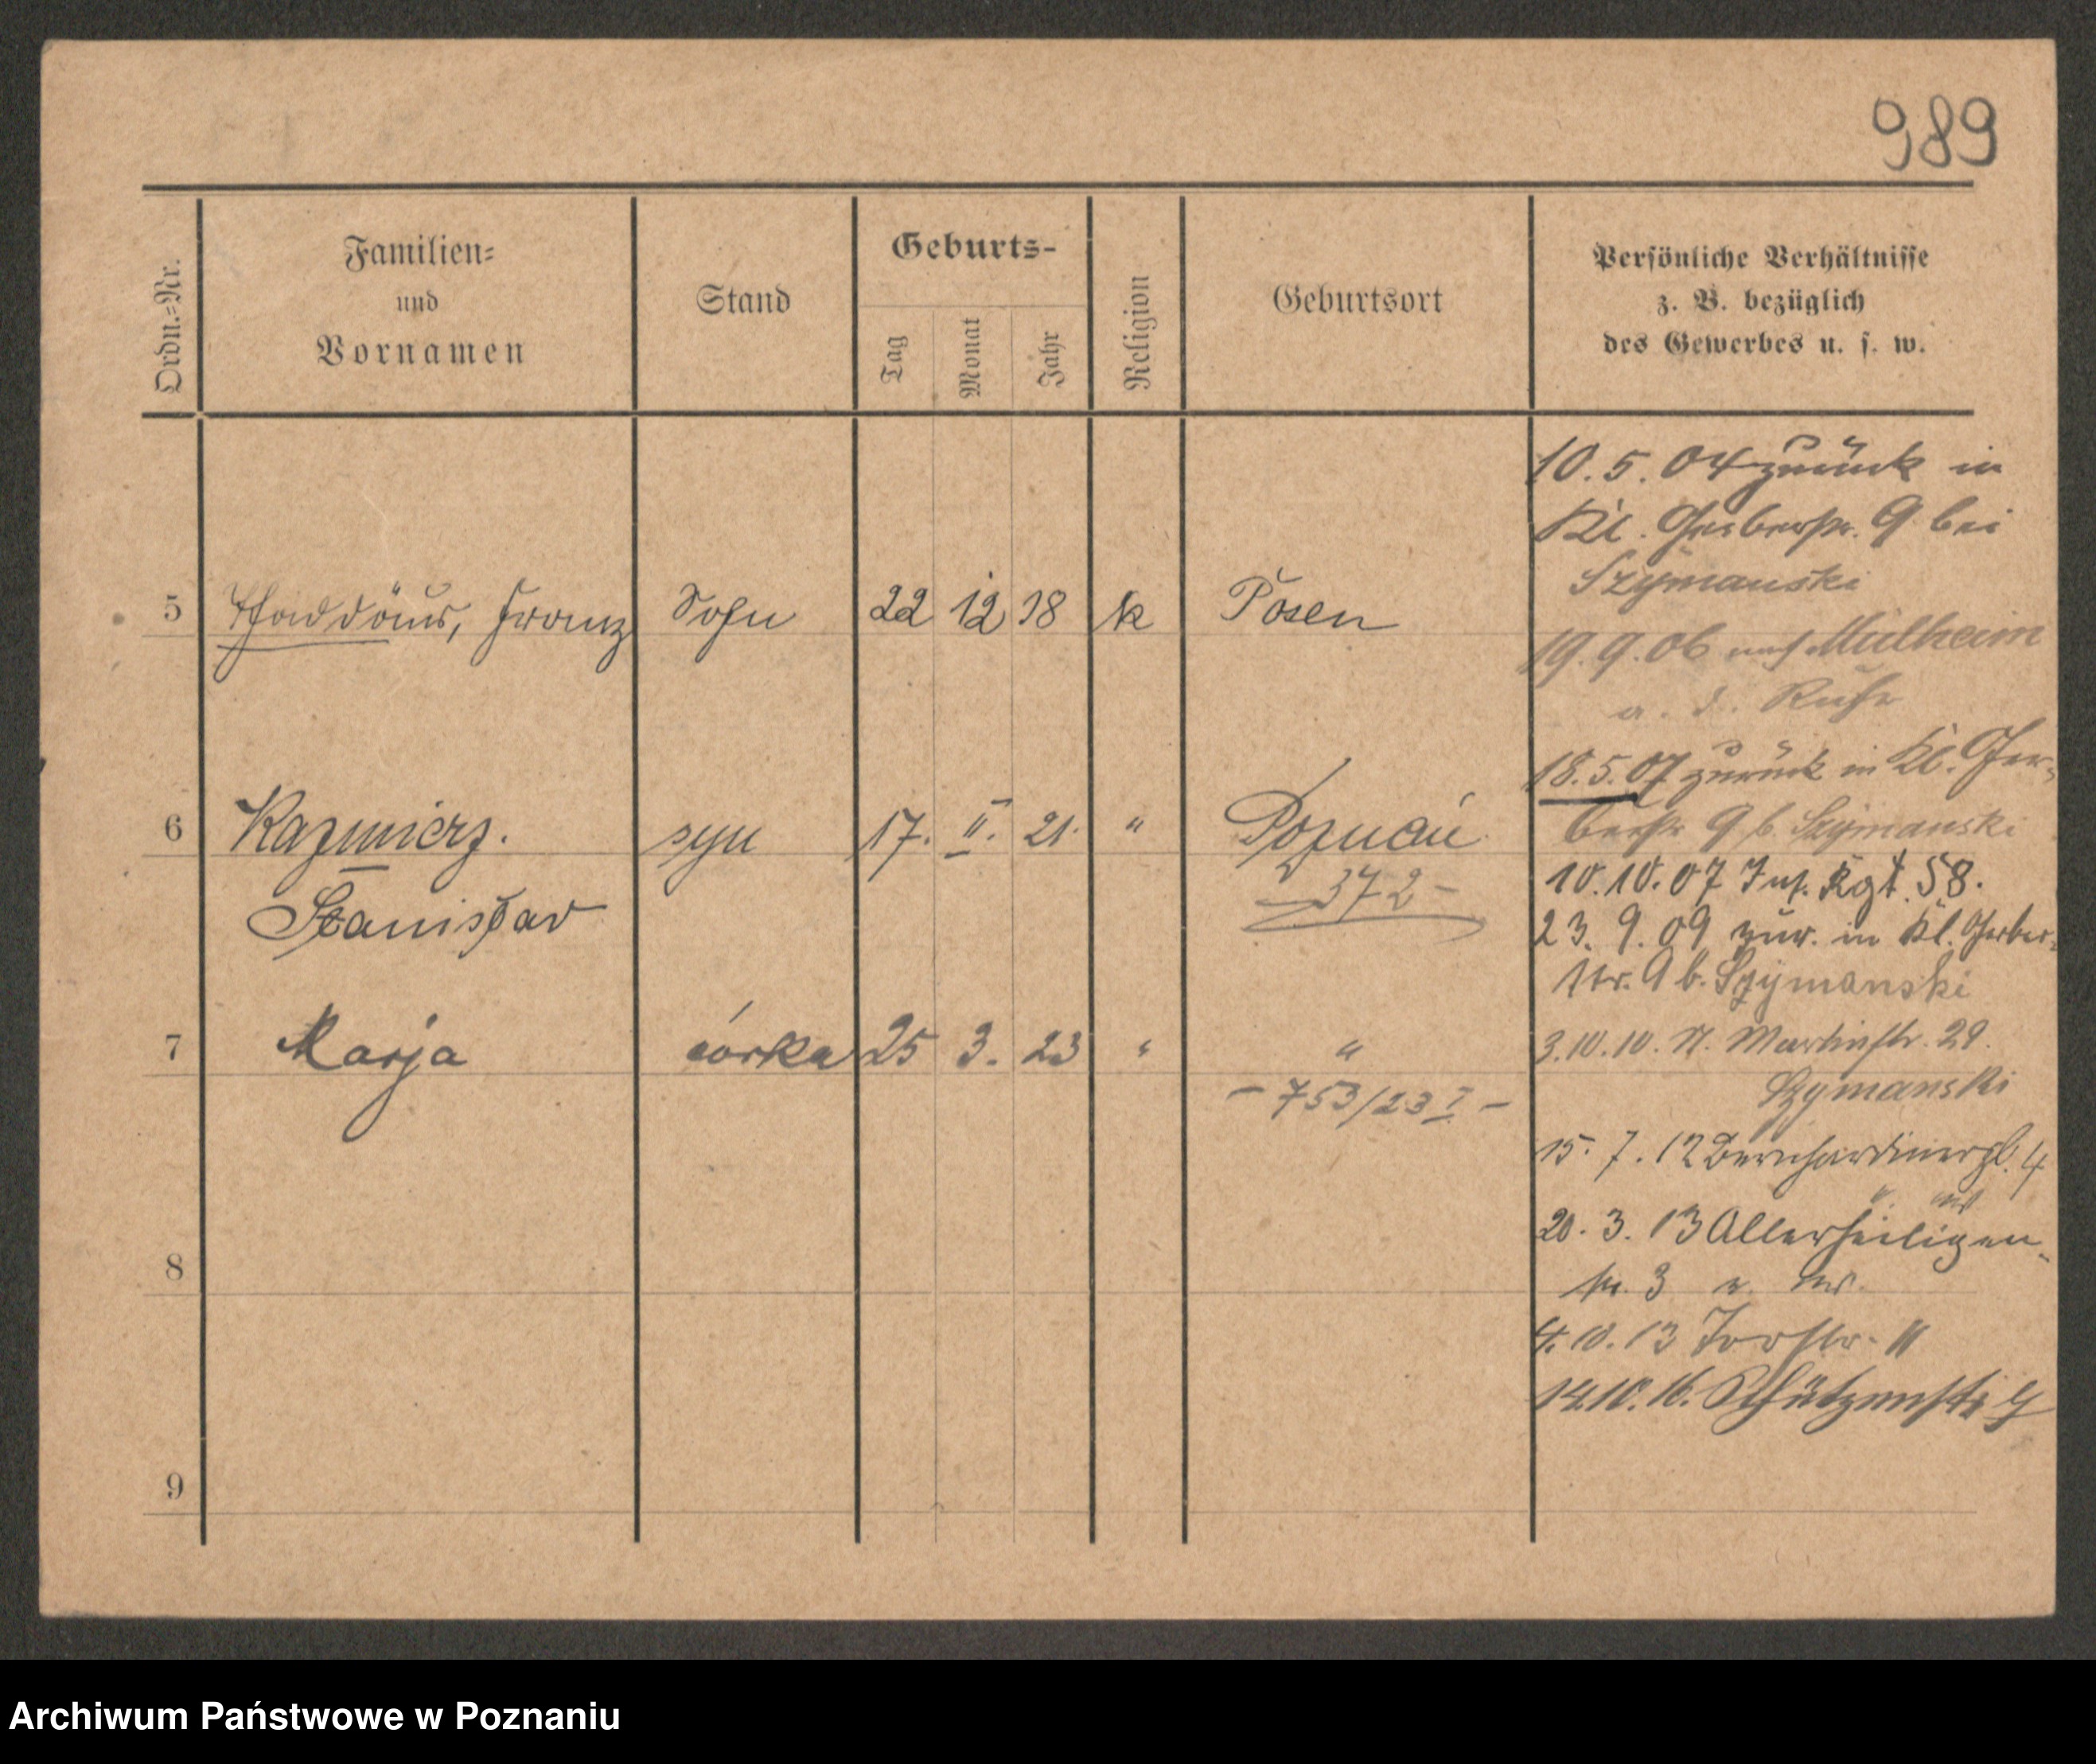 989
Ordn.-Nr.
Familien-
und
Vornamen
Stand
Geburts-
Tag
Monat
Jahr
Religion
Geburtsort
Persönliche Verhältnisse
z. B. bezüglich
des Gewerbes u. s. w.
5 Thaddäus, Franz Sohn 22 12 18 k Posen
6 Kazmierz. syn 17. II. 21. " Poznań
Stanisław
372 -
7 Marja córka 25 3. 23 " "
- 753/23 I -
8
9
10.5.04 zurück in
Kl. Gerberstr. 9 bei
Szymanski
19.9.06 nach Mülheim
a. d. Ruhr
18.5.07 zurück in Kl. Ger-
berstr 9 b. Szymanski
10.10.07 Inf. Rgt. 58.
23.9.09 zur. in Kl. Gerber-
str. 9 b. Szymanski
3.10.10. St. Martinstr. 29.
Szymanski
15.7.12 Bernhardinerpl. 4
20.3.13 Allerheiligen-
str. 3
4.10.13 Torstr.
14.10.16. Schützenstr
Archiwum Państwowe w Poznaniu